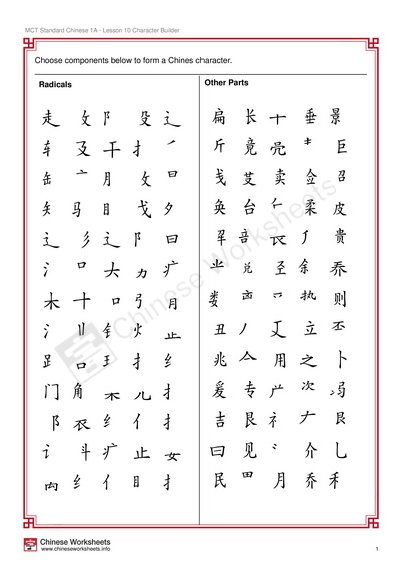 MCT Standard Chinese 1A - Lesson 10 Character Builder
Choose components below to form a Chines character.
Radicals
走 攵 阝 殳 辶
车 及 干 扌 ㇒
缶 亠 月 攵 罒
矢 马 目 戈 夕
辶 彡 辶 阝 日
氵 口 大 力 疒
木 十 口 弓 月
氵 刂 钅 火 止
𧾷 口 王 扌 纟
门 角 木 儿 扌
阝 衣 纟 亻 扌
讠 斗 疒 止 女
肉 纟 亻 目 扌
Other Parts
扁 长 十 垂 景
斤 竟 巨
戋 艾 卖 佥 召
奂 台 𠂉 柔 皮
音 贵
兑 余 乔
娄 执 则
丑 丿 立 丕
兆 用 之 卜
爰 专 次
吉 艮 礻 𠂇 艮
曰 见 介 乚
民 月 乔 禾
Chinese Worksheets
Chinese Worksheets
www.chineseworksheets.info
1